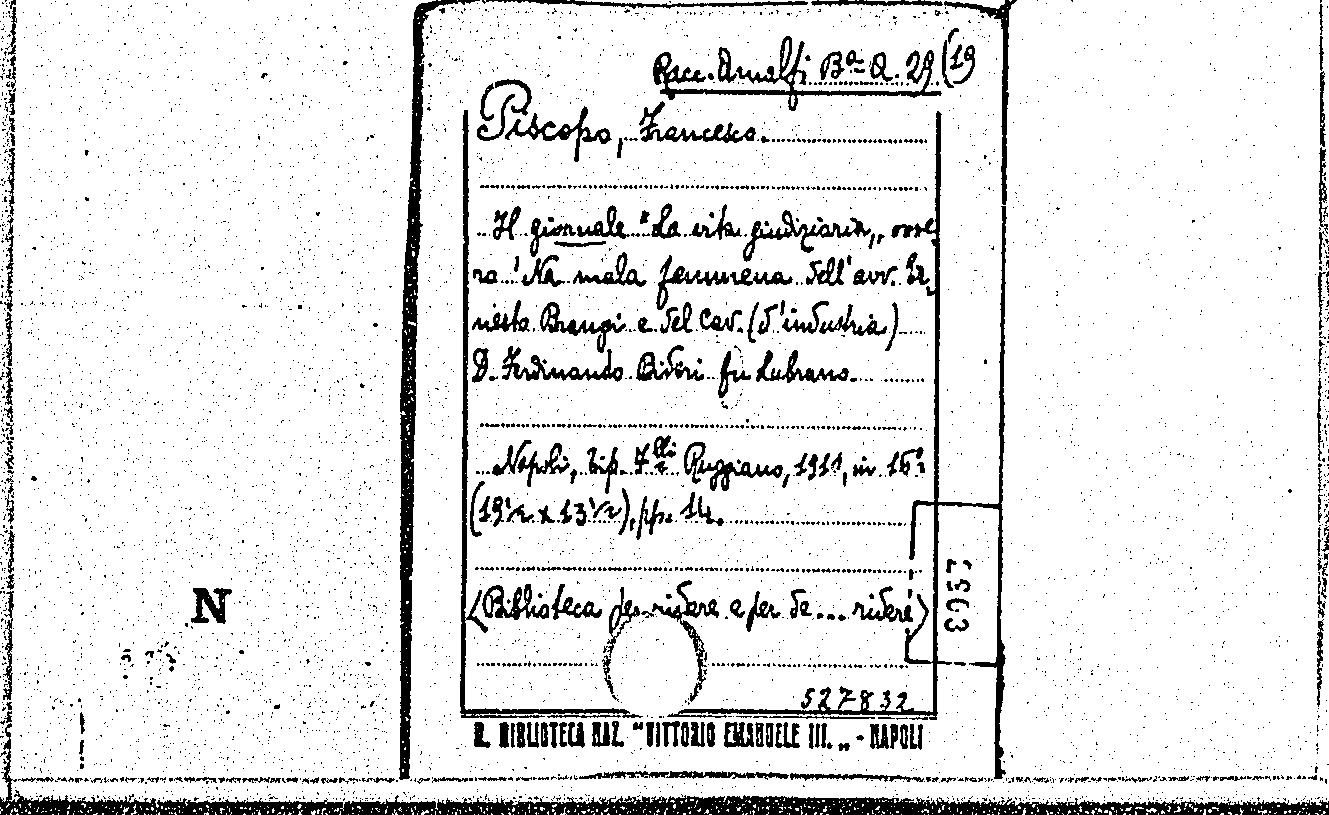 Racc. Amalfi Bª Q. 29 (19
Piscopo, Francesco.
Il giornale "La vita giudiziaria„ ovve,
ro 'Na mala femmena dell'avv. Er,
nesto Brangi e del Cav. (d'industria)
D. Ferdinando Bideri fu Lubrano.
Napoli, tip. F.lli Ruggiano, 1911, in 16º
(19½ x 13½), pp. 14.
(Biblioteca per ridere e per da... ridere)
N
527832
R. BIBLIOTECA NAZ. "VITTORIO EMANUELE III.„ - NAPOLI